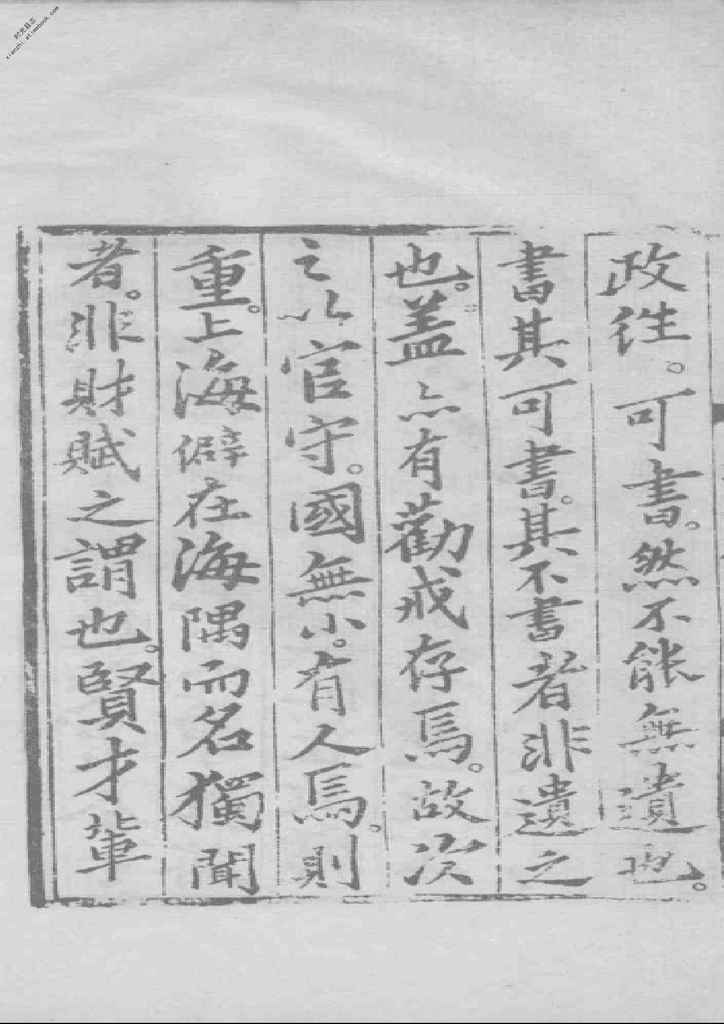 政徃。可書。然不能無遺也。
書其可書。其不書者非遺之
也。蓋亦有勸戒存焉。故次
之以官守。國無小。有人焉。則
重。上海僻在海隅而名獨聞
者。非財賦之謂也。賢才輩